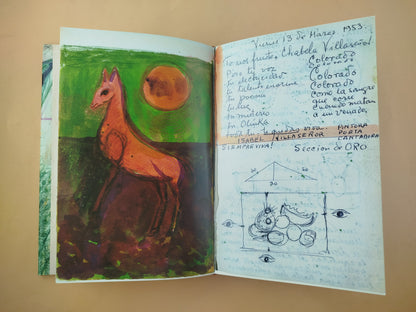 Viernes 13 de Marzo 1953.
Te nos fuiste, Chabela Villaseñor
Pero tu voz
Colorado
tu electricidad
Colorado
tu talento enorme
Colorado
tu poesía
como la sangre
tu luz
que corre
tu misterio
cuando matan
tu Olinka
a un venado.
ISABEL VILLASEÑOR
PINTORA
POETA
CANTADORA
SIEMPREVIVA!
Sección de ORO